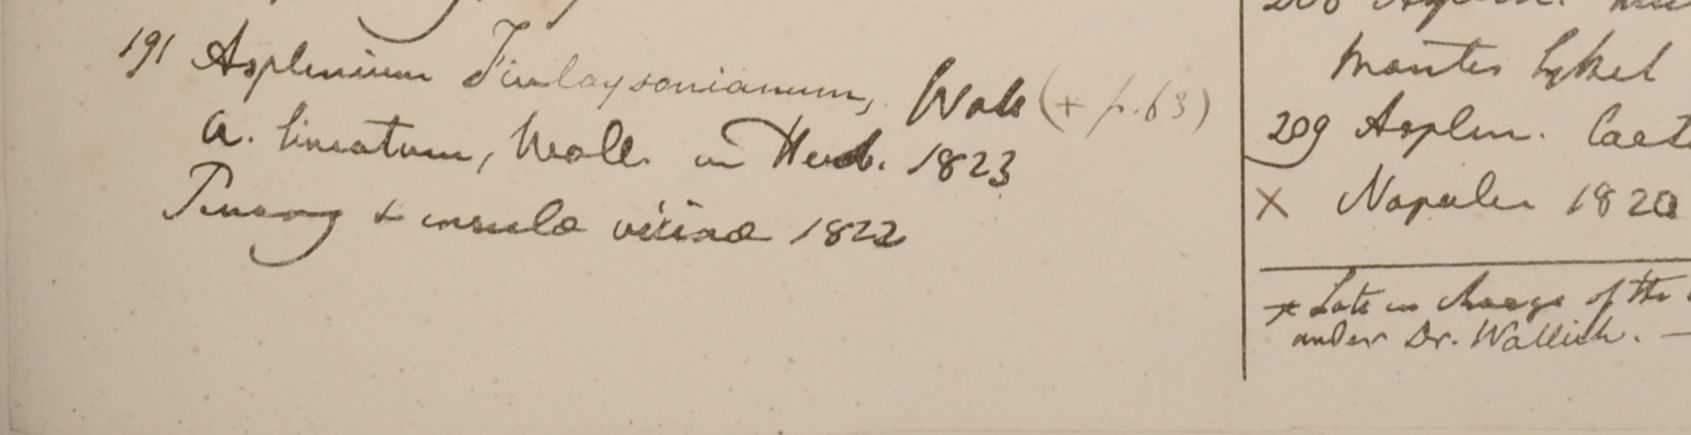 191 Asplenium Finlaysonianum, Wall (+ p. 63)
A. lineatum, Wall. in Herb. 1823
Penang & insulæ vicinæ 1822
Montes Sylhet
209 Asplen.
× Napalia 1820
× Late in charge of the
under Dr. Wallich. —